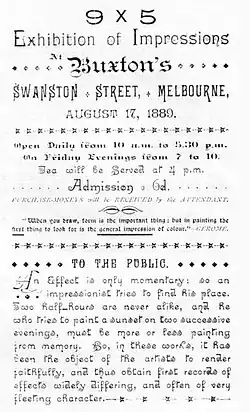 9 X 5
Exhibition of Impressions
At Buxton's
SWANSTON STREET, MELBOURNE,
AUGUST 17, 1889.
Open Daily from 10 a.m. to 5.30 p.m.
On Friday Evenings from 7 to 10.
Tea will be Served at 4 p.m.
Admission 6d.
PURCHASE-MONEYS will be RECEIVED by the ATTENDANT.
"When you draw, form is the important thing; but in painting the
first thing to look for is the general impression of colour."—GEROME.
TO THE PUBLIC.
An Effect is only momentary: so an
impressionist tries to find his place.
Two half-hours are never alike, and he
who tries to paint a sunset on two successive
evenings, must be more or less painting
from memory. So, in these works, it has
been the object of the artists to render
faithfully, and thus obtain first records of
effects widely differing, and often of very
fleeting character.